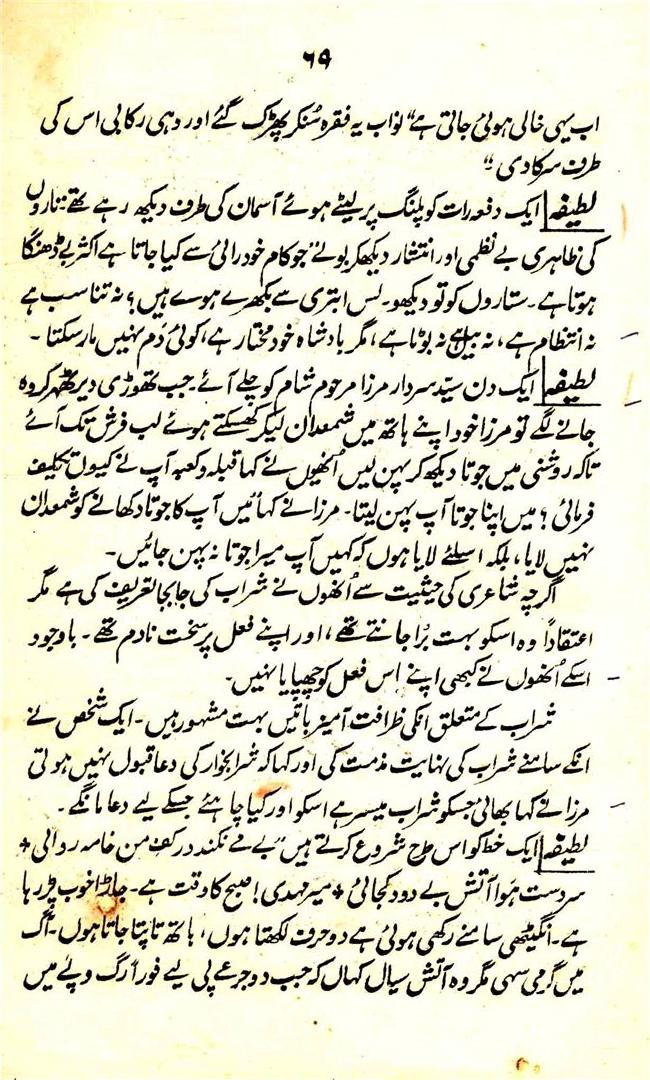 ۶۹
اب یہی خالی ہوئی جاتی ہے“ نواب یہ فقرہ سُنکر پھڑک گئے اور وہی رکابی اس کی
طرف سرکا دی“
لطیفہ ایک دفعہ رات کو پلنگ پر لیٹے ہوئے آسمان کی طرف دیکھ رہے تھے۔ تاروں
کی ظاہری بے نظمی اور انتشار دیکھکر بولے ”جو کام خود رائی سے کیا جاتا ہے اکثر بے ڈھنگا
ہوتا ہے۔ ستاروں کو تو دیکھو۔ بس ابتری سے بکھرے ہوے ہیں؟ نہ تناسب ہے
نہ انتظام ہے، نہ بیل ہے نہ بوٹا ہے، مگر بادشاہ خود مختار ہے، کوئی دَم نہیں مار سکتا۔
لطیفہ ایک دن سیّد سردار مرزا مرحوم شام کو چلے آئے۔ جب تھوڑی دیر ٹھہر کر وہ
جانے لگے تو مرزا خود اپنے ہاتھ میں شمعدان لیکر کھسکتے ہوئے لب فرش تک آئے
تاکہ روشنی میں جوتا دیکھ کر پہن لیں اُنھوں نے کہا قبلہ و کعبہ آپ نے کیوں تکلیف
فرمائی؟ میں اپنا جوتا آپ پہن لیتا۔ مرزا نے کہا ئیں آپ کا جوتا دکھانے کو شمعدان
نہیں لایا، بلکہ اسلئے لایا ہوں کہ کہیں آپ میرا جوتا نہ پہن جائیں۔
اگرچہ شاعری کی حیثیت سے اُنھوں نے شراب کی جابجا تعریف کی ہے مگر
اعتقاداً وہ اسکو بہت بُرا جانتے تھے، اور اپنے فعل پر سخت نادم تھے۔ باوجود
اسکے اُنھوں نے کبھی اپنے اس فعل کو چھپایا نہیں۔
شراب کے متعلق انکی ظرافت آمیز باتیں بہت مشہور ہیں۔ ایک شخص نے
انکے سامنے شراب کی نہایت مذمت کی اور کہا کہ شرابخوار کی دعا قبول نہیں ہوتی
مرزا نے کہا بھائی جسکو شراب میسر ہے اسکو اور کیا چاہئے جسکے لیے دعا مانگے۔
لطیفہ ایک خط کو اس طرح شروع کرتے ہیں ”بے مے نکند در کف من خامہ روائی +
سردست ہوا آتش بے دود کجائی + میر مہدی! صبح کا وقت ہے۔ جاڑا خوب پڑ رہا
ہے۔ انگیٹھی سامنے رکھی ہوئی ہے دو حرف لکھتا ہوں، ہاتھ تاپتا جاتا ہوں۔ آگ
میں گرمی سہی مگر وہ آتش سیال کہاں کہ جب دو جرعے پی لیے فوراً رگ و پئے میں